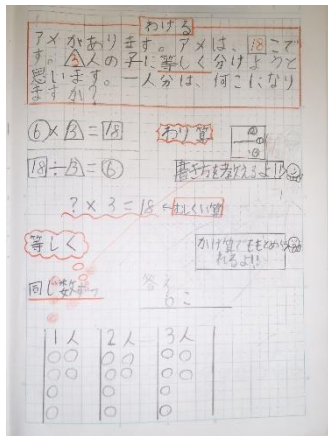 わける
アメがあります。アメは、18こで
す。3人の子に等しく分けようと
思います。一人分は、何こになり
ますか?
6×3=18
わり算
18÷3=6
書き方を教えるよ!
?×3=18
等しく
かけ算でももとめら
れるよ!!
同じ数ずつ
答え
6こ
1人 2人 3人